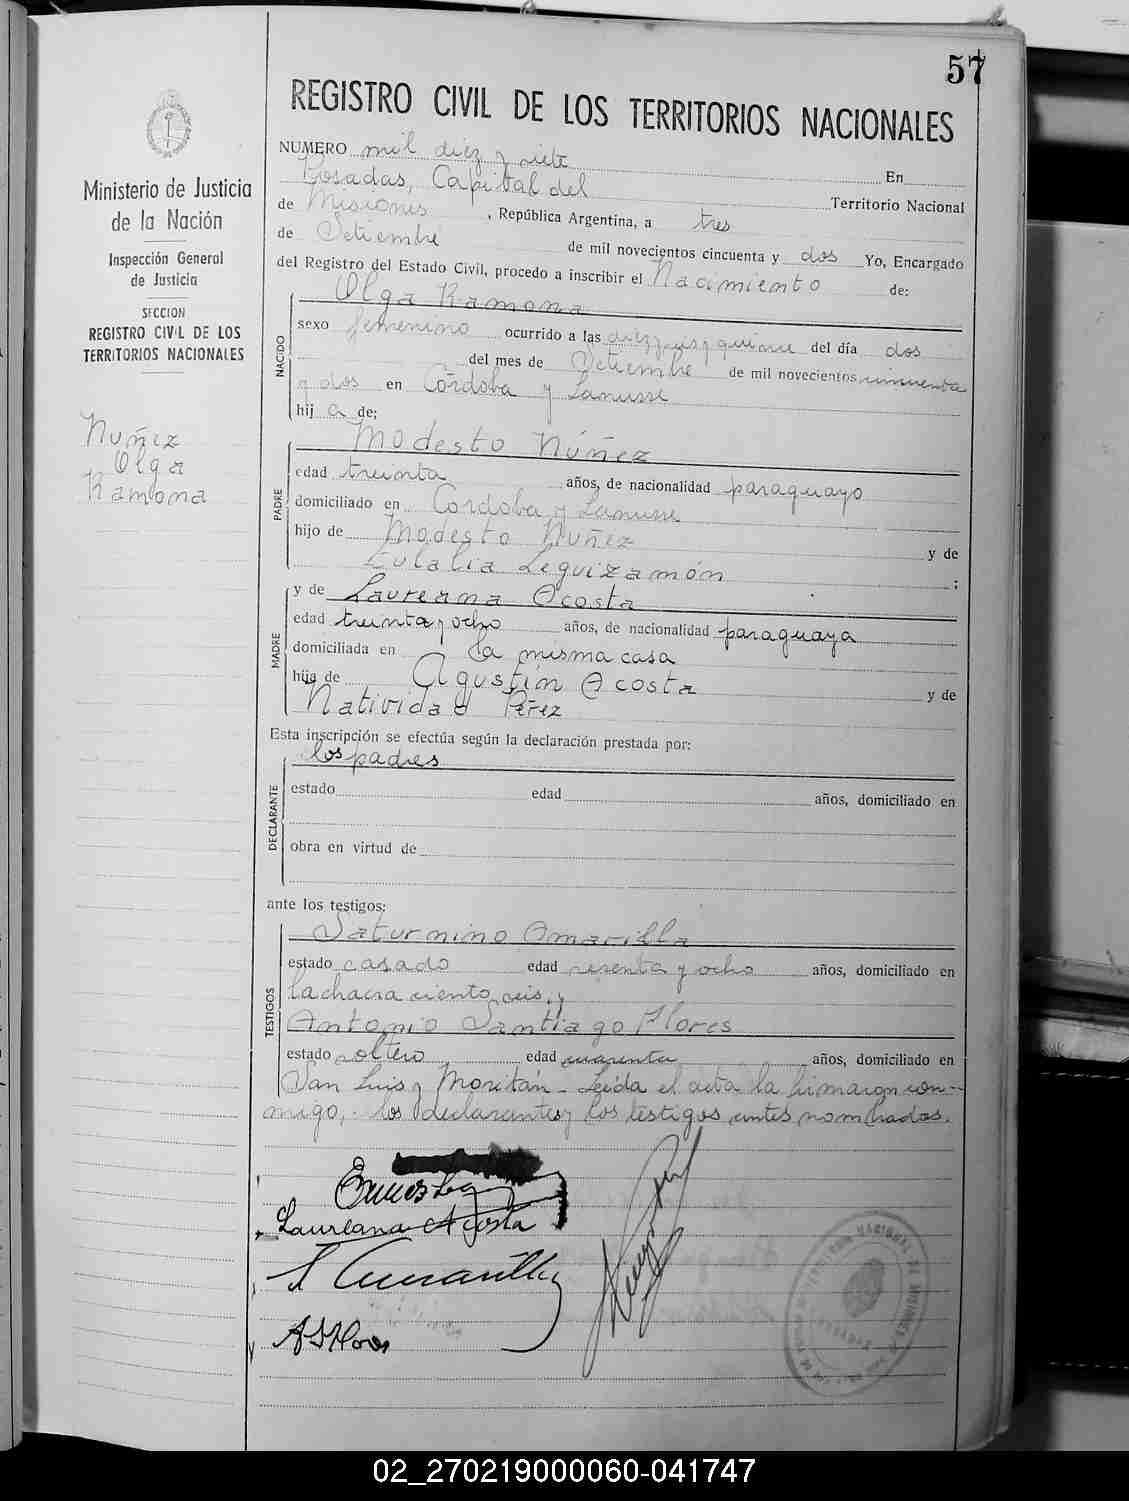 57
REGISTRO CIVIL DE LOS TERRITORIOS NACIONALES
Ministerio de Justicia
de la Nación
Inspección General
de Justicia
SECCION
REGISTRO CIVIL DE LOS
TERRITORIOS NACIONALES
Nuñez
Olga
Ramona
NUMERO mil diez y siete En
Posadas, Capital del Territorio Nacional
de Misiones, República Argentina, a tres
de Setiembre de mil novecientos cincuenta y dos Yo, Encargado
del Registro del Estado Civil, procedo a inscribir el Nacimiento de:
NACIDO
Olga Ramona
sexo femenino ocurrido a las y quince del día dos
del mes de Setiembre de mil novecientos cincuenta
y dos en Córdoba y Lanusse
hij a de;
PADRE
Modesto Núñez
edad treinta años, de nacionalidad paraguayo
domiciliado en Córdoba y Lanusse
hijo de Modesto Nuñez y de
Eulalia Leguizamón ;
MADRE
y de Laureana Acosta
edad treinta y ocho años, de nacionalidad paraguaya
domiciliada en la misma casa
hija de Agustín Acosta y de
Natividad Pérez
Esta inscripción se efectúa según la declaración prestada por:
los padres
DECLARANTE
estado edad años, domiciliado en
obra en virtud de
ante los testigos:
TESTIGOS
Saturnino Amarilla
estado casado edad sesenta y ocho años, domiciliado en
la chacra ciento seis, y
Antonio Santiago Flores
estado soltero edad cuarenta años, domiciliado en
San Luis y Moritán - Leída el acta la firmaron con-
migo, los declarantes y los testigos antes nombrados.
Laureana Acosta
S Amarilla
A S Flores
02_270219000060-041747